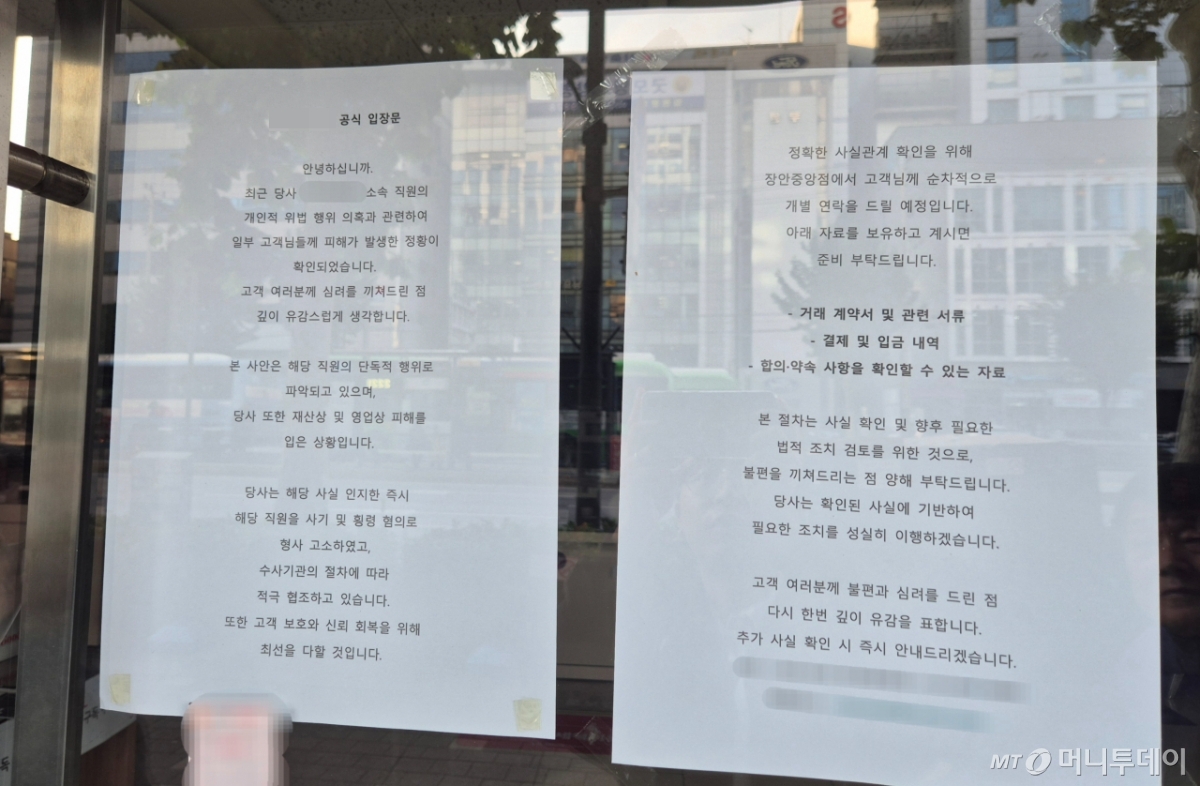 공식 입장문
안녕하십니까.
최근 당사 소속 직원의
개인적 위법 행위 의혹과 관련하여
일부 고객님들께 피해가 발생한 정황이
확인되었습니다.
고객 여러분께 심려를 끼쳐드린 점
깊이 유감스럽게 생각합니다.
본 사안은 해당 직원의 단독적 행위로
파악되고 있으며,
당사 또한 재산상 및 영업상 피해를
입은 상황입니다.
당사는 해당 사실 인지한 즉시
해당 직원을 사기 및 횡령 혐의로
형사 고소하였고,
수사기관의 절차에 따라
적극 협조하고 있습니다.
또한 고객 보호와 신뢰 회복을 위해
최선을 다할 것입니다.
정확한 사실관계 확인을 위해
장안중앙점에서 고객님께 순차적으로
개별 연락을 드릴 예정입니다.
아래 자료를 보유하고 계시면
준비 부탁드립니다.
- 거래 계약서 및 관련 서류
- 결제 및 입금 내역
- 합의·약속 사항을 확인할 수 있는 자료
본 절차는 사실 확인 및 향후 필요한
법적 조치 검토를 위한 것으로,
불편을 끼쳐드리는 점 양해 부탁드립니다.
당사는 확인된 사실에 기반하여
필요한 조치를 성실히 이행하겠습니다.
고객 여러분께 불편과 심려를 드린 점
다시 한번 깊이 유감을 표합니다.
추가 사실 확인 시 즉시 안내드리겠습니다.
MT 머니투데이